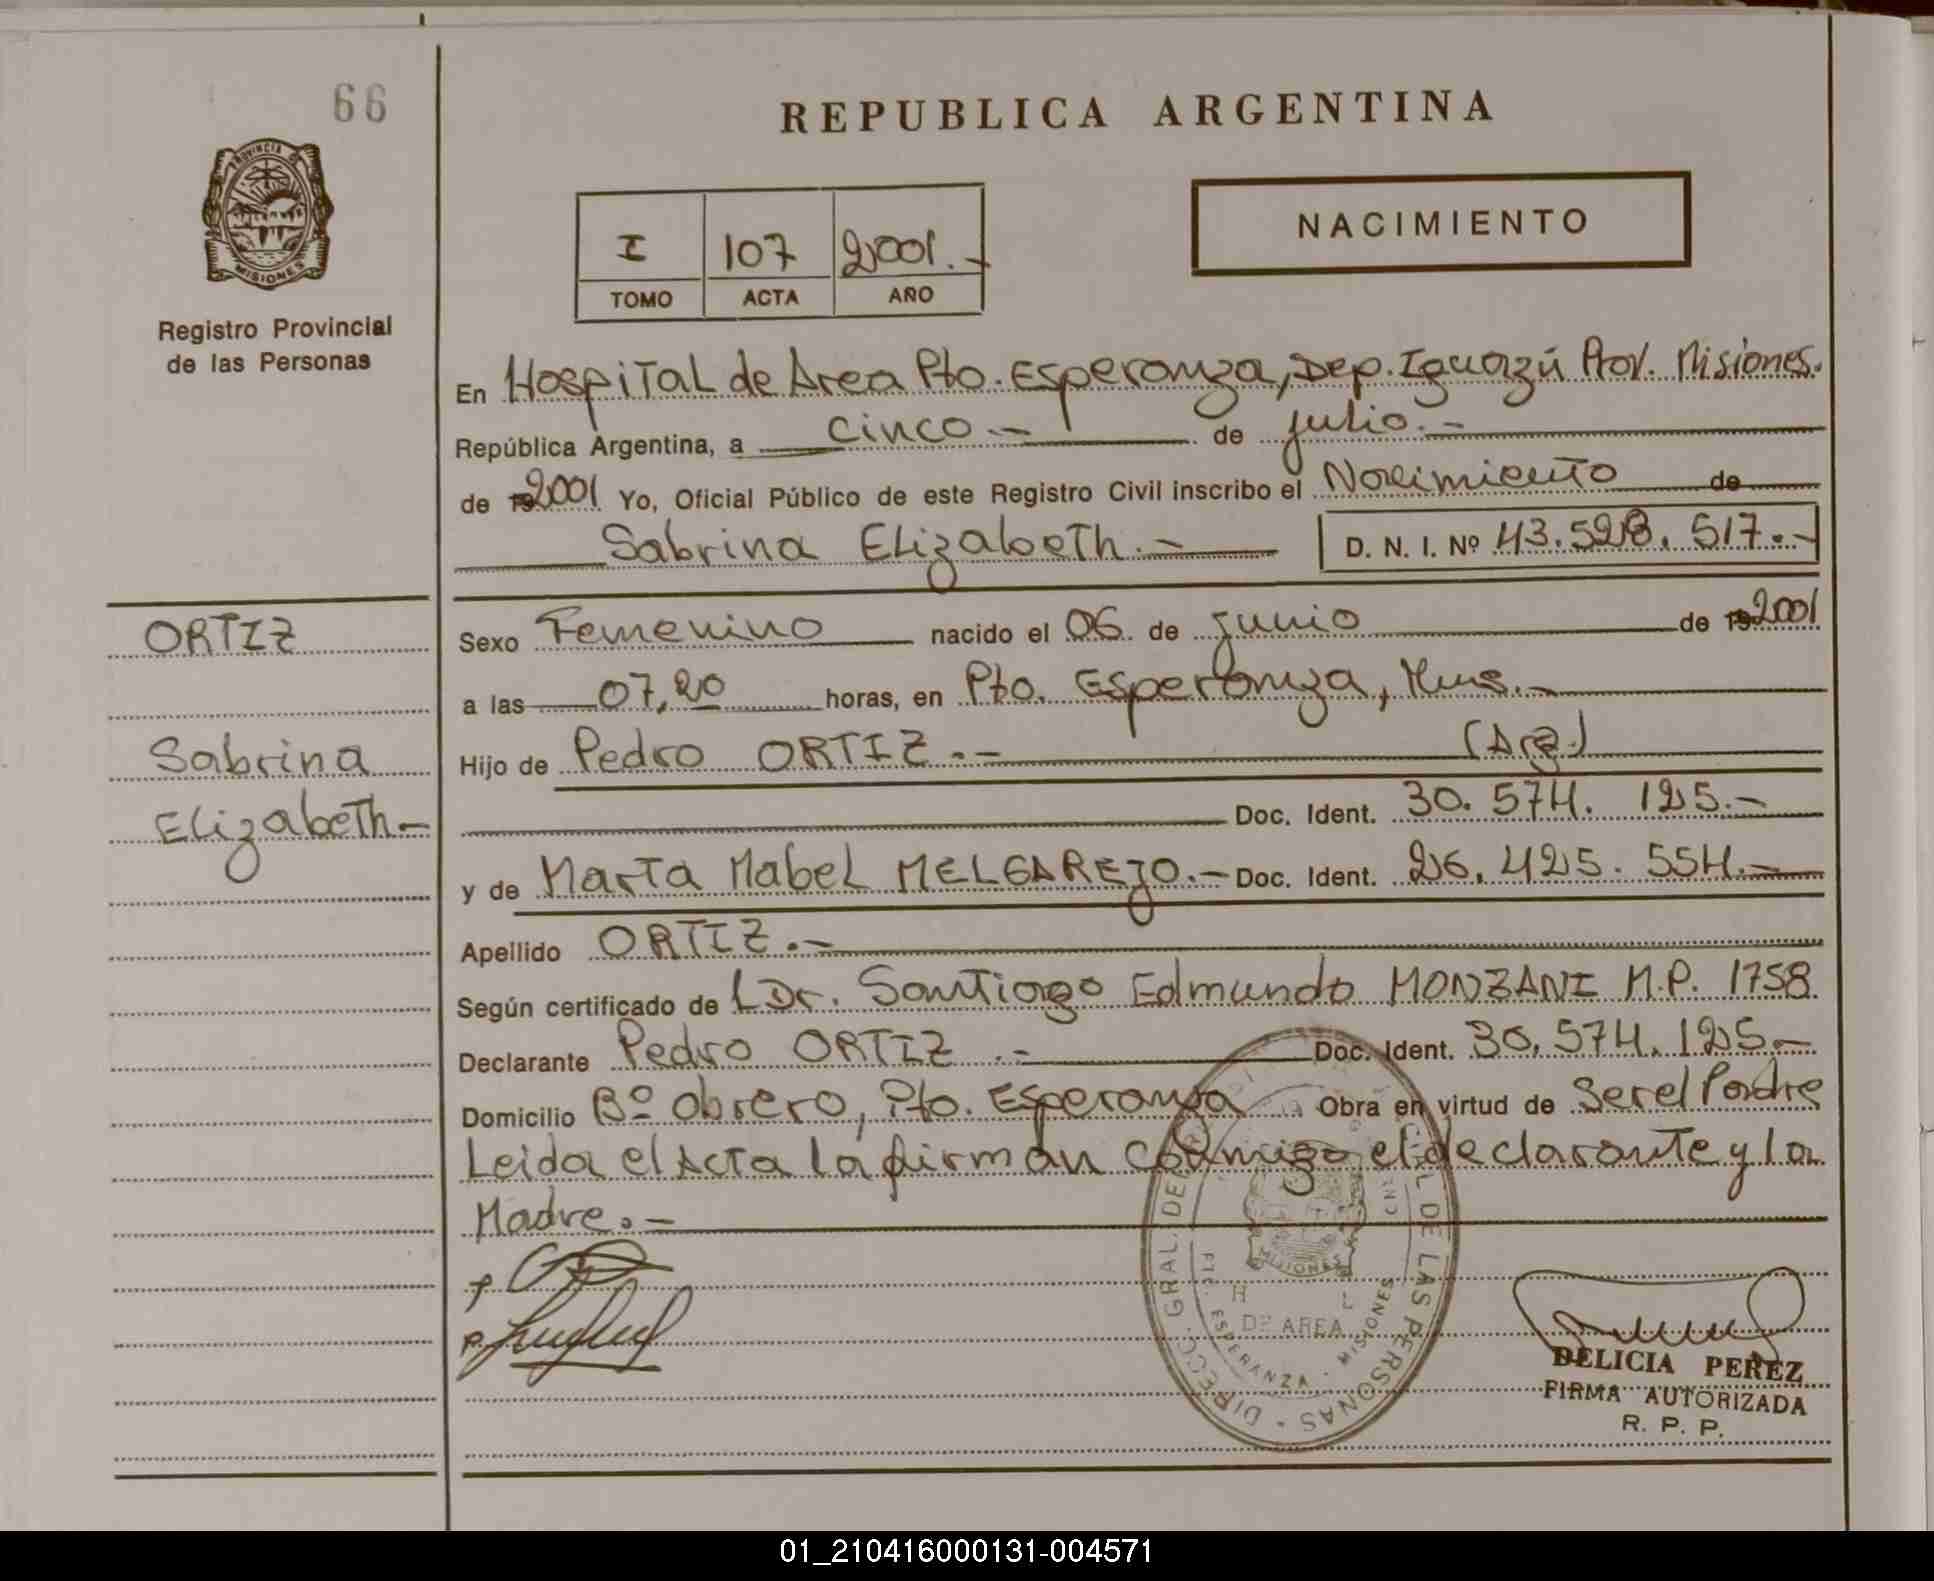 66
PROVINCIA DE
MISIONES
Registro Provincial
de las Personas
REPUBLICA ARGENTINA
I 107 2001.-
TOMO ACTA AÑO
NACIMIENTO
En Hospital de Area Pto. Esperanza, Dep. Iguazú Prov. Misiones.
República Argentina, a cinco.- de julio.-
de 192001 Yo, Oficial Público de este Registro Civil inscribo el Nacimiento de
Sabrina Elizabeth.- D. N. I. Nº 43.528.517.-
ORTIZ
Sabrina
Elizabeth-
Sexo Femenino nacido el 06 de junio de 192001
a las 07,20 horas, en Pto. Esperanza, Mnes.-
Hijo de Pedro ORTIZ.- (Arg.)
Doc. Ident. 30.574.125.-
y de Marta Mabel MELGAREJO.- Doc. Ident. 26.425.554.-
Apellido ORTIZ.-
Según certificado de Dr. Santiago Edmundo MONZANI M.P. 1758
Declarante Pedro ORTIZ.- Doc. Ident. 30.574.125.-
Domicilio Bº Obrero, Pto. Esperanza Obra en virtud de Ser el Padre
Leida el Acta la firman conmigo el declarante y la
Madre.-
DIRECC. GRAL. DE LAS PERSONAS
MISIONES
DE AREA
ESPERANZA - MISIONES
DELICIA PEREZ
FIRMA AUTORIZADA
R. P. P.
01_210416000131-004571